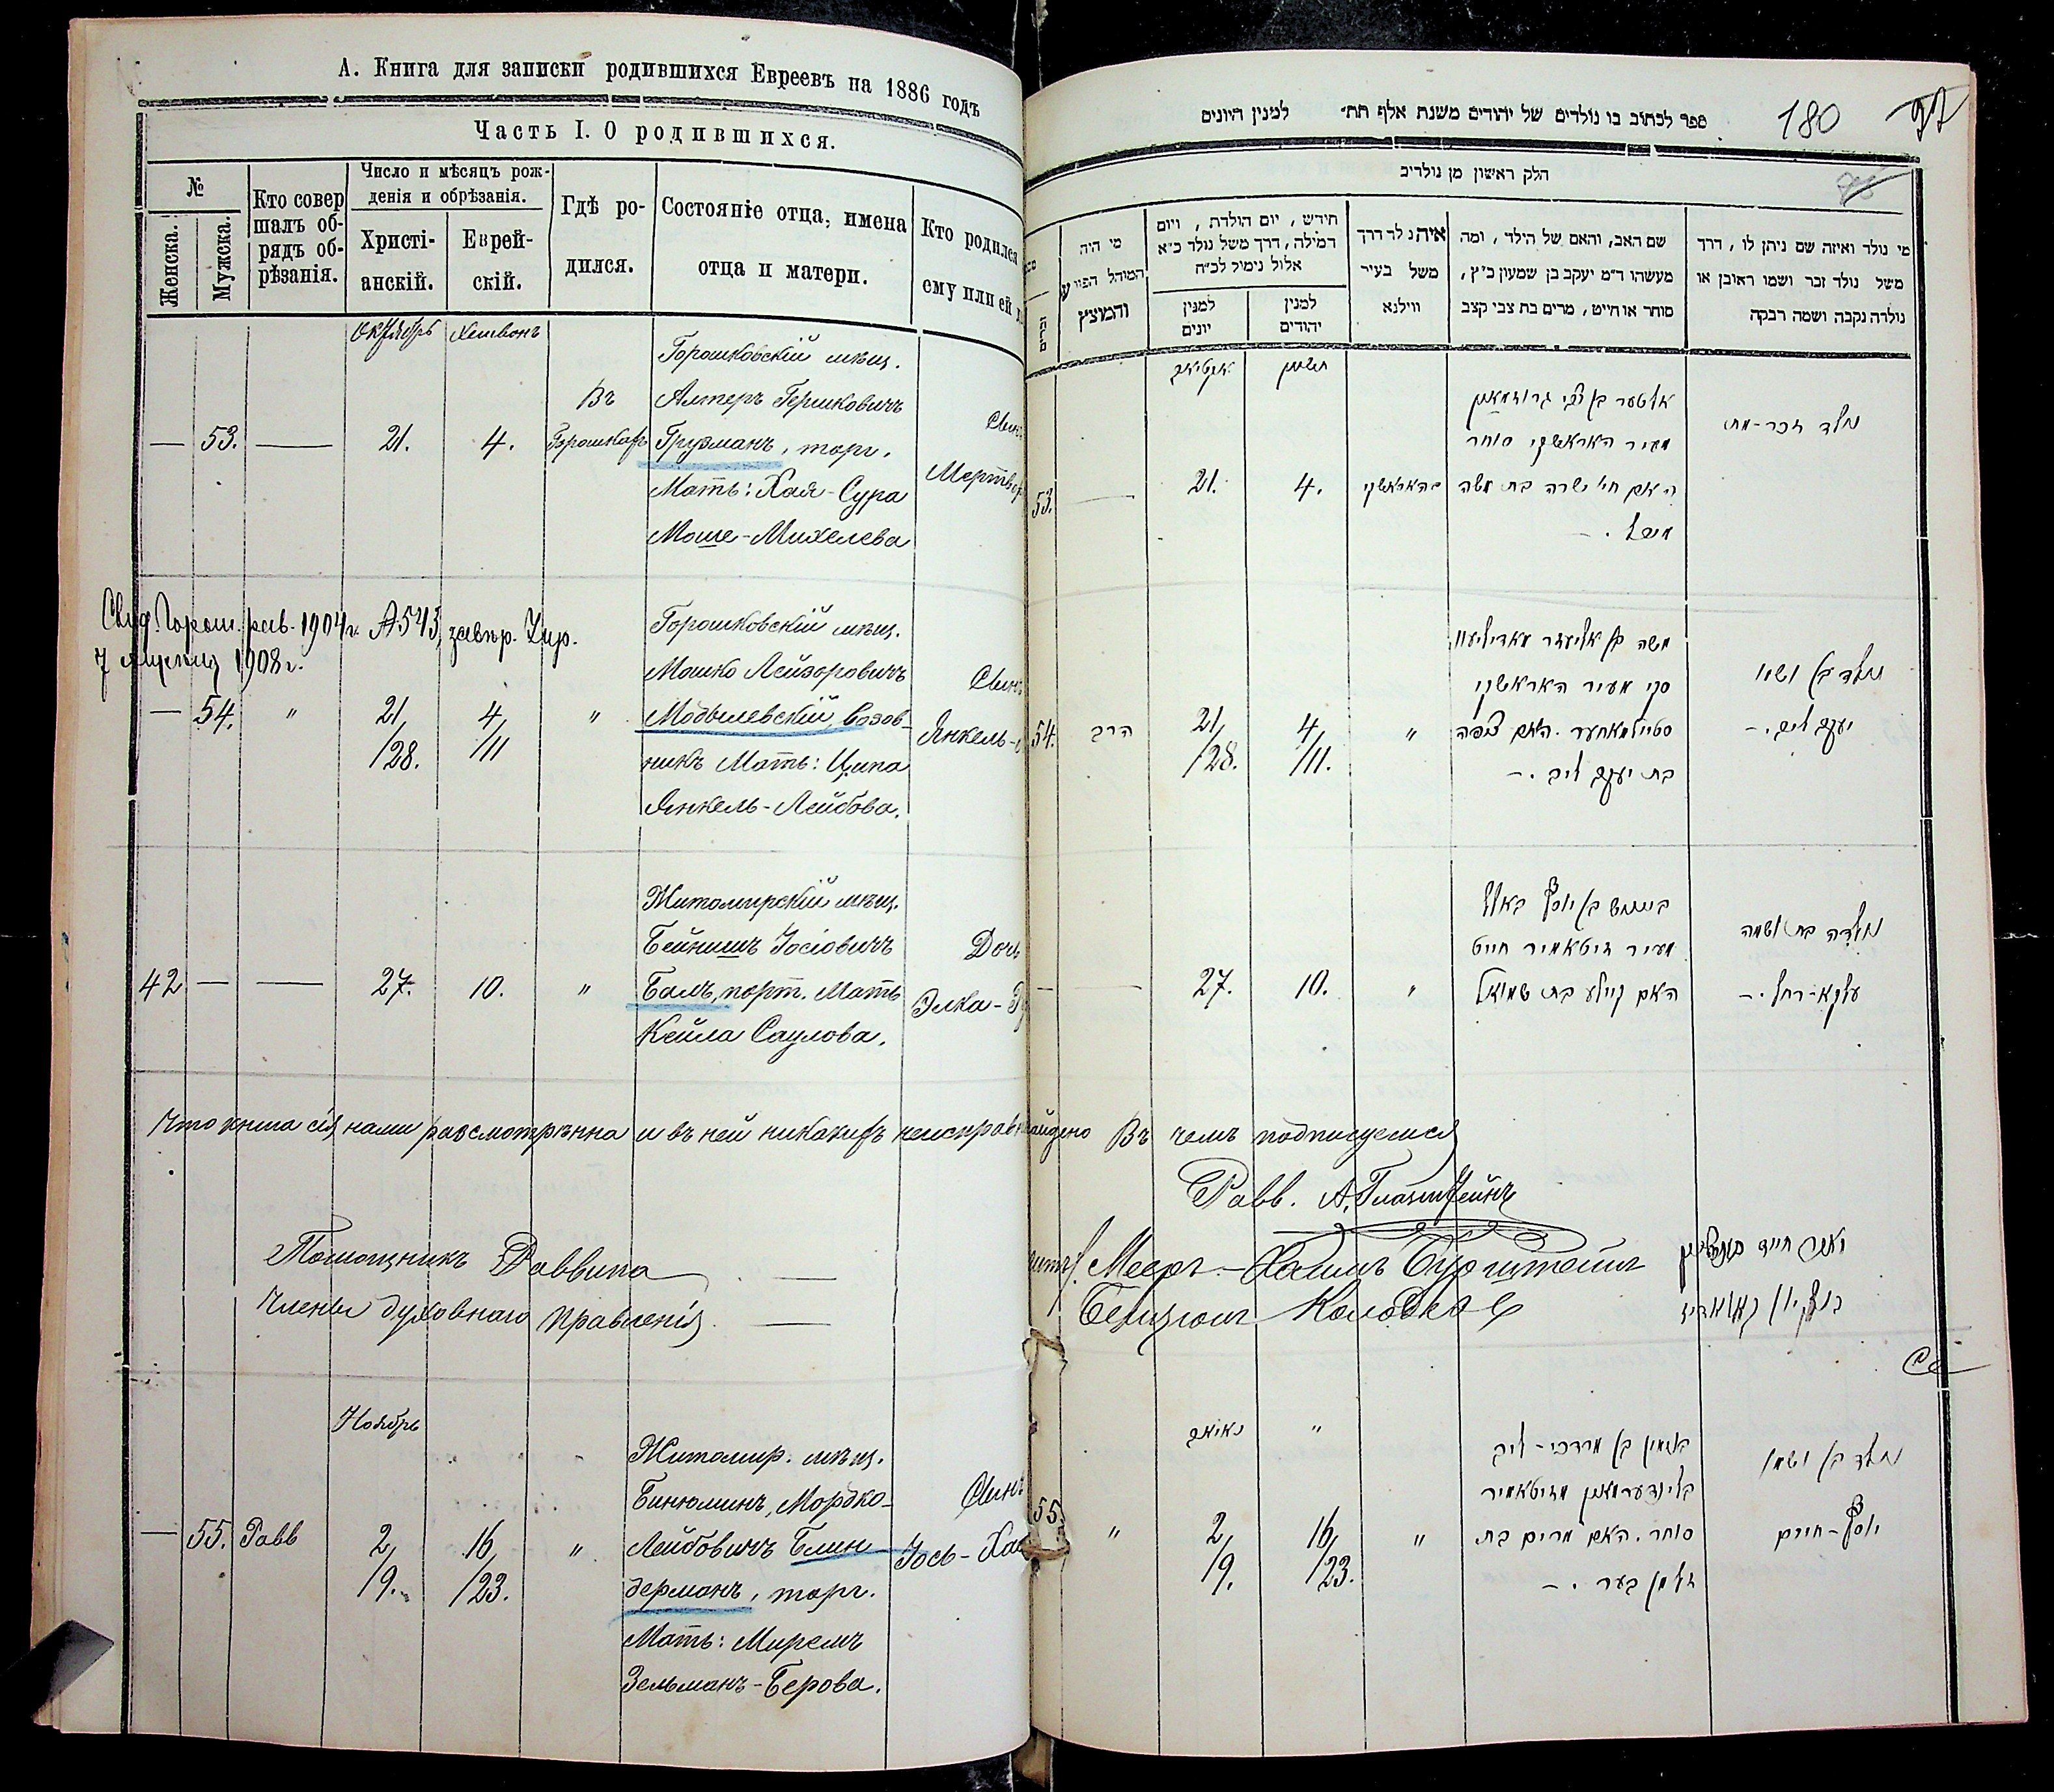 А. Книга для записки родившихся Евреевъ на 1886 годъ
Часть I. О родившихся.
№
Женска.
Мужска.
Кто совер
шалъ об-
рядъ об-
рѣзанія.
Число и мѣсяцъ рож-
денія и обрѣзанія.
Христі-
анскій.
Еврей-
скій.
Гдѣ ро-
дился.
Состояніе отца, имена
отца и матери.
Кто родился
ему или ей
Октябрь Хешвонъ
Горошковскій мѣщ.
Въ Алтеръ Гершковичъ
— 53. — 21. 4. Горошкахъ Грузманъ, торг. Сынъ
Мать: Хая-Сура Мертво
Моше-Михелева
Свид. Горош. рав. 1904 г. № 543, завѣр. Жир.
7 1908 г.
Горошковскій мѣщ.
Мошко Лейзоровичъ Сынъ
— 54. " 21/28. 4/11 " Модылевскій, возов-
никъ Мать: Ципа Янкель-
Янкель-Лейбова.
Житомирскій мѣщ.
Бейнишъ Іосіовичъ Дочь
42 — — 27. 10. " Балъ, порт. Мать Элка-
Кейла Саулова.
Что книга сія нами разсмотрѣнна и въ ней никакихъ неисправн
Помощникъ Раввина —
Члены духовнаго Правленія —
Ноябрь
Житомир. мѣщ.
Бинюминъ, Мордко- Сынъ
— 55. Равв 2/9. 16/23. " Лейбовичъ Блин- Іось-
дерманъ, торг.
Мать: Миремъ
Зельманъ-Берова.
ספר לכתוב בו נולדים של יהודים משנת אלף תת׳ למנין היונים
180
חלק ראשון מן נולדים
מי נולד ואיזה שם ניתן לו, דרך
משל נולד זכר ושמו ראובן או
נולדה נקבה ושמה רבקה
שם האב, והאם של הילד, ומה
מעשהו ד״מ יעקב בן שמעון כ״ץ,
סוחר או חייט, מרים בת צבי קצב
איה נלד דרך
משל בעיר
ווילנא
חידש, יום הולדת, ויום
המילה, דרך משל נולד כ״א
אלול נימול לכ״ח
למנין
יהודים
למנין
יונים
מי היה
המוהל הפורע
והמוצץ
חשון
אקטיאב
אלטער בן צבי גרוזמאן
נולד זכר-מת
מעיר האראשקי סוחר
53. — 21. 4. בהאראשקי
האם חי׳ שרה בת משה
מיכל. —
משה בן אליעזר מאדיליעוו
נולד בן ושמו
סקי מעיר האראשקי
54. הרב 21/28. 4/11. "
סטעלמאכער. האם ציפה
יעקב ליב. —
בת יעקב ליב. —
ביינוש בן יוסף באלל
נולדה בת ושמה
מעיר זיטאמיר חייט
— — 27. 10. "
האם קיילע בת שמואל
עלקא-רחל. —
айдено Въ чемъ подписуемся
Равв. А. Глазштейнъ
Мееръ-Хаимъ Бурштейнъ
מאיר חיים בורשטיין
Бенцион
בן ציון
נאיאב "
בנימין בן מרדכי-ליב
נולד בן ושמו
בלינדערמאן מזיטאמיר
55. " 2/9. 16/23. "
סוחר. האם מרים בת
יוסף-חיים
זלמן בער. —